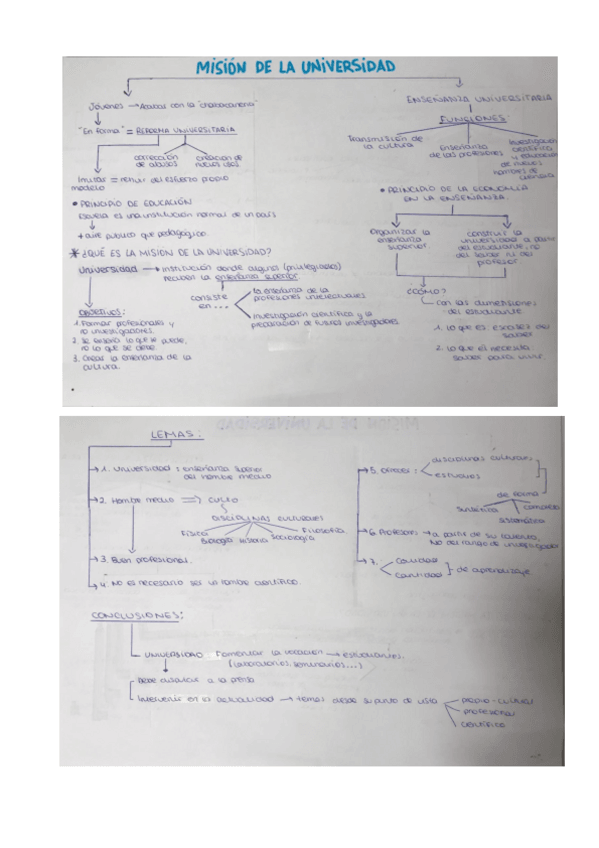 MISIÓN DE LA UNIVERSIDAD
Jóvenes → Acabar con la "chabacanería"
"En forma" = REFORMA UNIVERSITARIA
corrección de abusos
creación de nuevos usos
Imitar = rehuir del esfuerzo propio
modelo
• PRINCIPIO DE EDUCACIÓN
Escuela es una institución normal de un país
+ aire público que pedagógico.
* ¿QUÉ ES LA MISIÓN DE LA UNIVERSIDAD?
Universidad → institución donde algunos (privilegiados)
reciben la enseñanza superior
consiste
en...
la enseñanza de la
profesiones intelectuales
investigación científica y la
preparación de futuros investigadores
OBJETIVOS:
1. Formar profesionales y
no investigadores.
2. Se enseña lo que se puede,
no lo que se debe.
3. Crear la enseñanza de la
cultura.
ENSEÑANZA UNIVERSITARIA
FUNCIONES
Transmisión de
la cultura
Enseñanza
de las profesiones
Investigación
científica
y educación
de nuevos
hombres de
ciencia
• PRINCIPIO DE LA ECONOMÍA
EN LA ENSEÑANZA.
Organizar la
enseñanza
superior
construir la
universidad a partir
del estudiante, no
del saber ni del
profesor
¿CÓMO?
con las dimensiones
del estudiante
1. lo que es: escasez del
saber
2. lo que él necesita
saber para vivir.
LEMAS:
1. Universidad: enseñanza superior
del hombre medio
2. Hombre medio ⇒ CULTO
DISCIPLINAS CULTURALES
Física
Biología
Historia
Sociología
Filosofía
3. Buen profesional.
4. NO es necesario ser un hombre científico.
5. disciplinas culturales
estudios
de forma
sintética
sistemática
completa
6. Profesor: → a partir de su talento,
NO del rango de investigador
7. Calidad
Cantidad
de aprendizaje
CONCLUSIONES:
UNIVERSIDAD Fomentar la vocación → estudiantes.
(laboratorios, seminarios...)
Debe a la prensa
Intervenir en la actualidad → temas desde su punto de vista
propio - cultural
profesional
científico